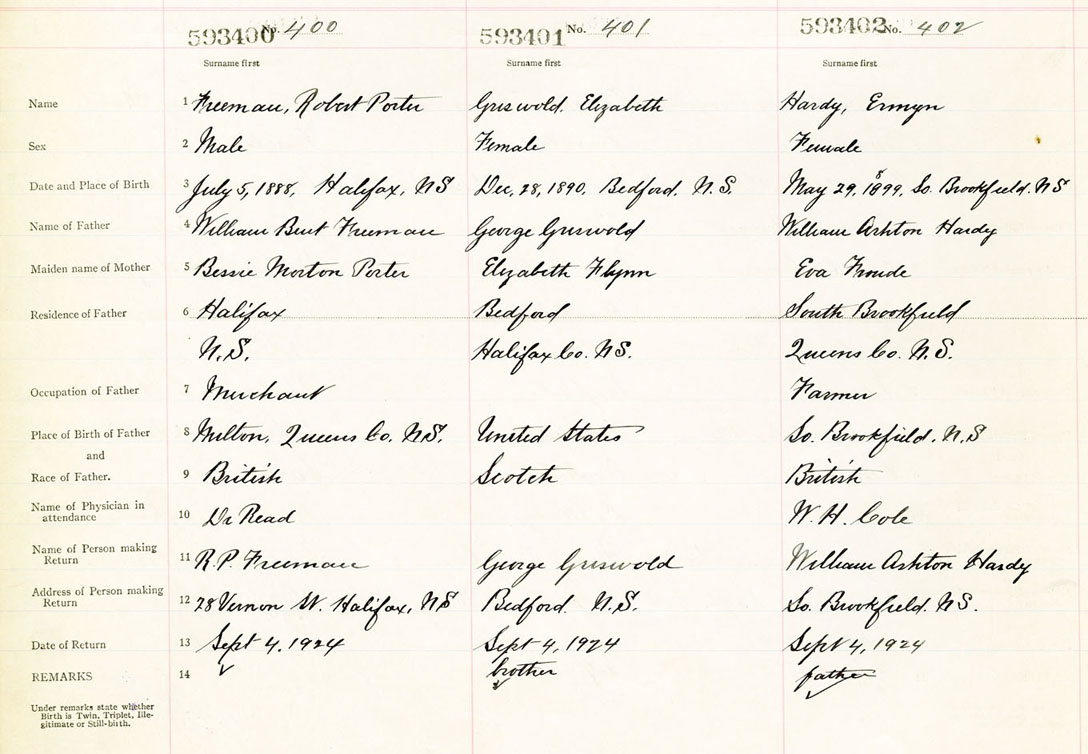 593400 No. 400 593401 No. 401 593402 No. 402
Surname first Surname first Surname first
Name 1 Freeman, Robert Porter Griswold, Elizabeth Hardy, Ermyn
Sex 2 Male Female Female
Date and Place of Birth 3 July 5, 1888, Halifax, NS Dec, 28, 1890, Bedford, N.S. May 29, 1899, So. Brookfield. NS
Name of Father 4 William Bent Freeman George Griswold William Ashton Hardy
Maiden name of Mother 5 Bessie Morton Porter Elizabeth Flynn Eva Froude
Residence of Father 6 Halifax Bedford South Brookfield
N.S. Halifax Co. NS. Queens Co. N.S.
Occupation of Father 7 Merchant Farmer
Place of Birth of Father 8 Milton, Queens Co. NS. United States So. Brookfield. N.S
and
Race of Father. 9 British Scotch British
Name of Physician in
attendance 10 Dr Read W. H. Cole
Name of Person making
Return 11 R.P. Freeman George Griswold William Ashton Hardy
Address of Person making
Return 12 28 Vernon St. Halifax, NS Bedford. N.S. So. Brookfield. NS.
Date of Return 13 Sept 4, 1924 Sept 4, 1924 Sept 4, 1924
REMARKS 14 brother father
Under remarks state whether
Birth is Twin, Triplet, Ille-
gitimate or Still-birth.